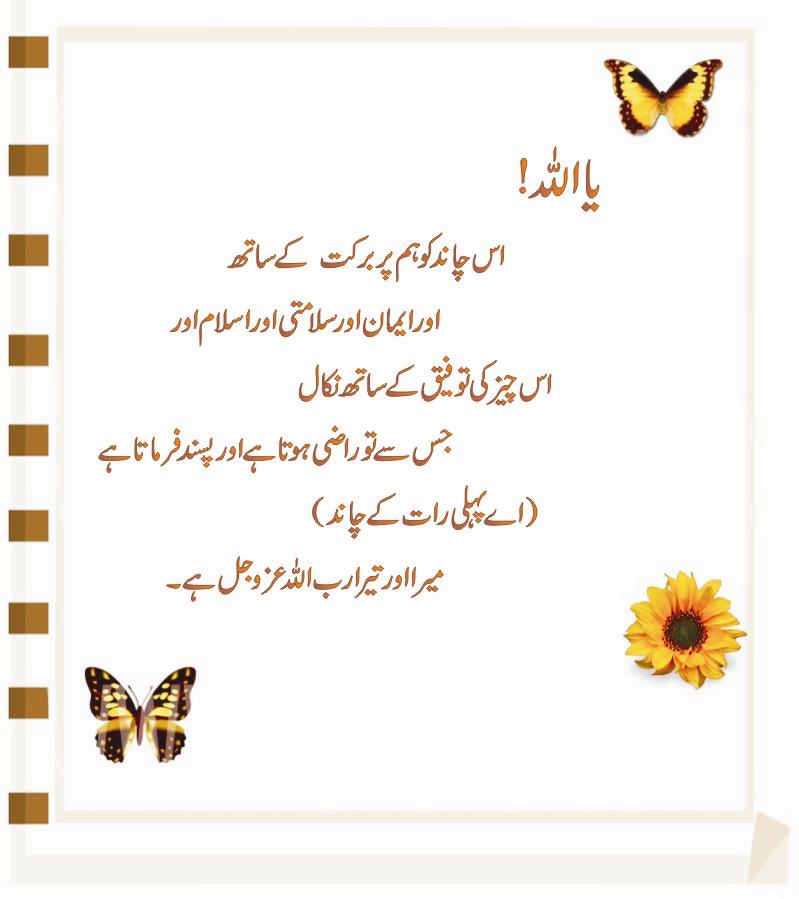 یا اللہ!
اس چاند کو ہم پر برکت کے ساتھ
اور ایمان اور سلامتی اور اسلام اور
اس چیز کی توفیق کے ساتھ نکال
جس سے تو راضی ہوتا ہے اور پسند فرماتا ہے
(اے پہلی رات کے چاند)
میرا اور تیرا رب اللہ عزوجل ہے۔